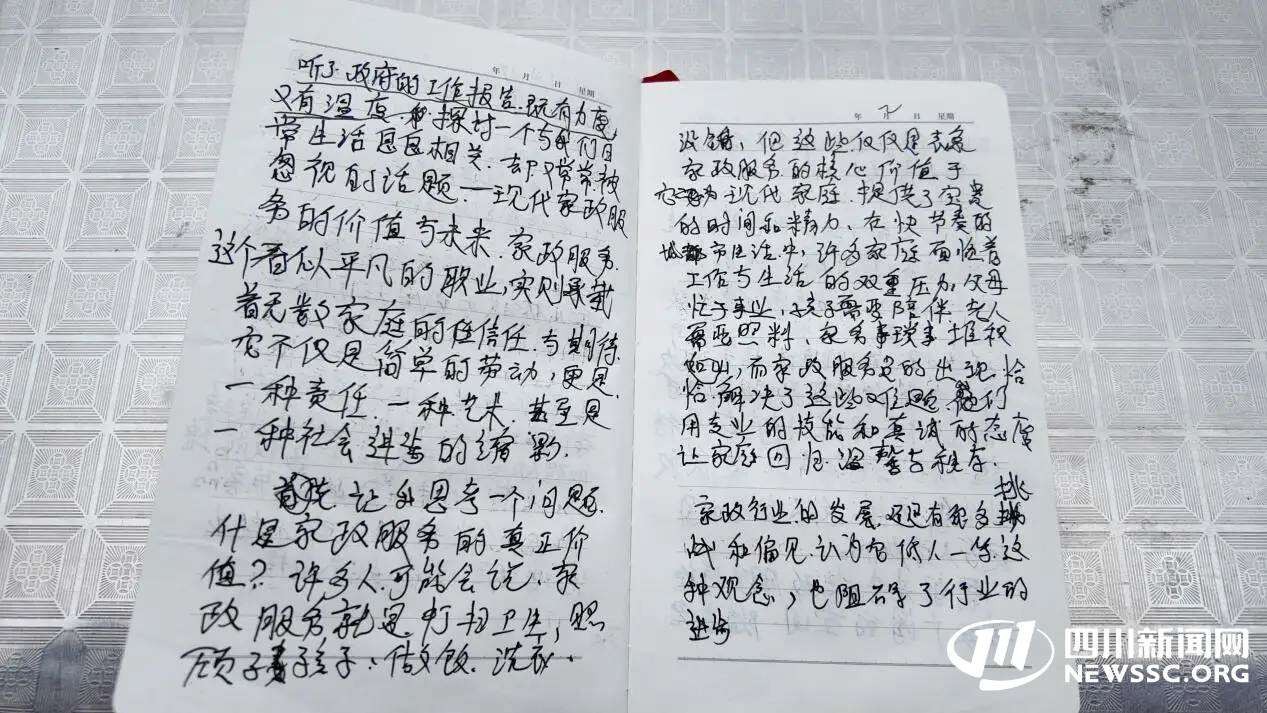 年 月 日 星期
听了政府的工作报告.既有力度,
又有温度.和探讨一个与我们日
常生活息息相关.却又常常被
忽视的话题一现代家政服
务的价值与未来.家政服务.
这个看似平凡的职业,实则承载
着无数家庭的信任.与期待
它不仅是简单的劳动,更是
一种责任.一种艺术.甚至是
一种社会进步的缩影.
首先让我思考一个问题.
什是家政服务的真正价
值?许多人可能会说.家
政服务就是打扫卫生,照
顾孩子、做饭.洗衣.
年 月 日 星期
没错,但这些仅仅是表象
家政服务的核心价值于
它为现代家庭.提供了宝贵
的时间和精力.在快节奏的
城市生活中,许多家庭面临着
工作与生活的双重压力,父母
忙于事业,孩子需要陪伴.老人
需要照料、家务事琐事堆积
如山,而家政服务员的出现恰
恰解决了这些问题.他们
用专业的技能和真诚的态度
让家庭回归温馨与秩序.
家政行业的发展.还有很多挑
战和偏见.认为低人一等这
种观念,也阻碍了行业的
进步
四川新闻网
NEWSSC.ORG